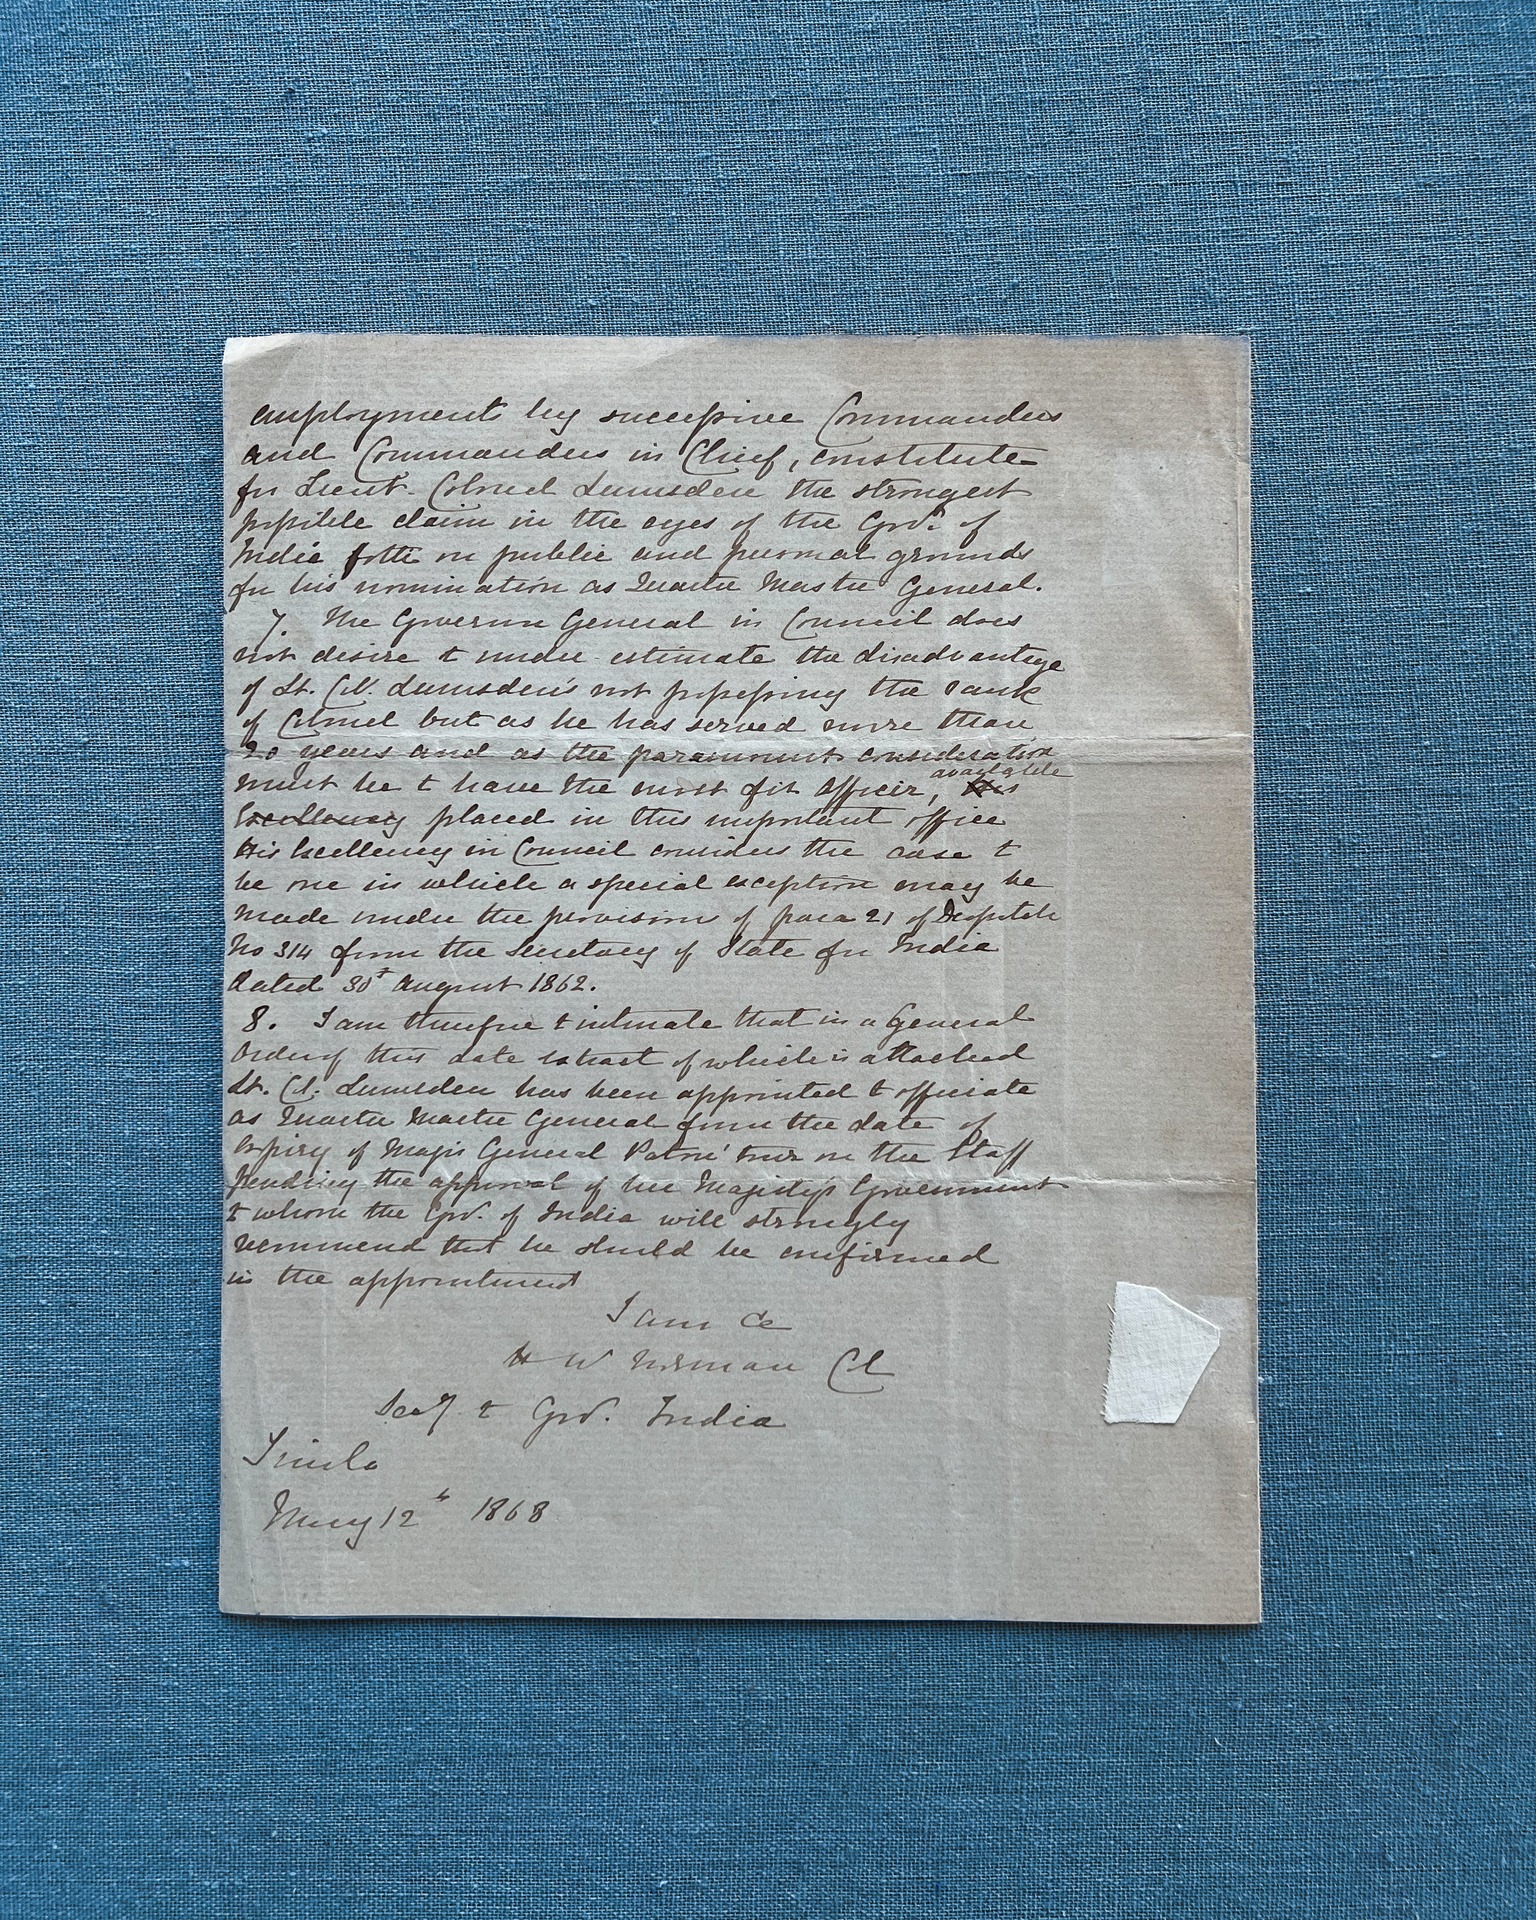 employment by successive Commanders
and Commanders in Chief, constitute
for Lieut. Colonel Lumsden the strongest
possible claim in the eyes of the Govt. of
India both on public and personal grounds
for his nomination as Quarter Master General.
7. The Governor General in Council does
not desire to under estimate the disadvantage
of Lt. Col. Lumsden's not possessing the rank
of Colonel but as he has served more than
20 years and as the paramount consideration
available
must be to have the most fit Officer, His
Excellency placed in this important office
His Excellency in Council considers the case to
be one in which a special exception may be
made under the provision of para 21 of Despatch
No 314 from the Secretary of State for India
dated 30th August 1862.
8. I am therefore to intimate that in a General
Order of this date extract of which is attached
Lt. Col. Lumsden has been appointed to officiate
as Quarter Master General from the date of
expiry of Major General Paton's tour on the Staff
pending the approval of her Majesty's Government
to whom the Govt. of India will strongly
recommend that he should be confirmed
in the appointment
I am &c
H W Norman Col
Secy. to Govt. India
Simla
May 12th 1868